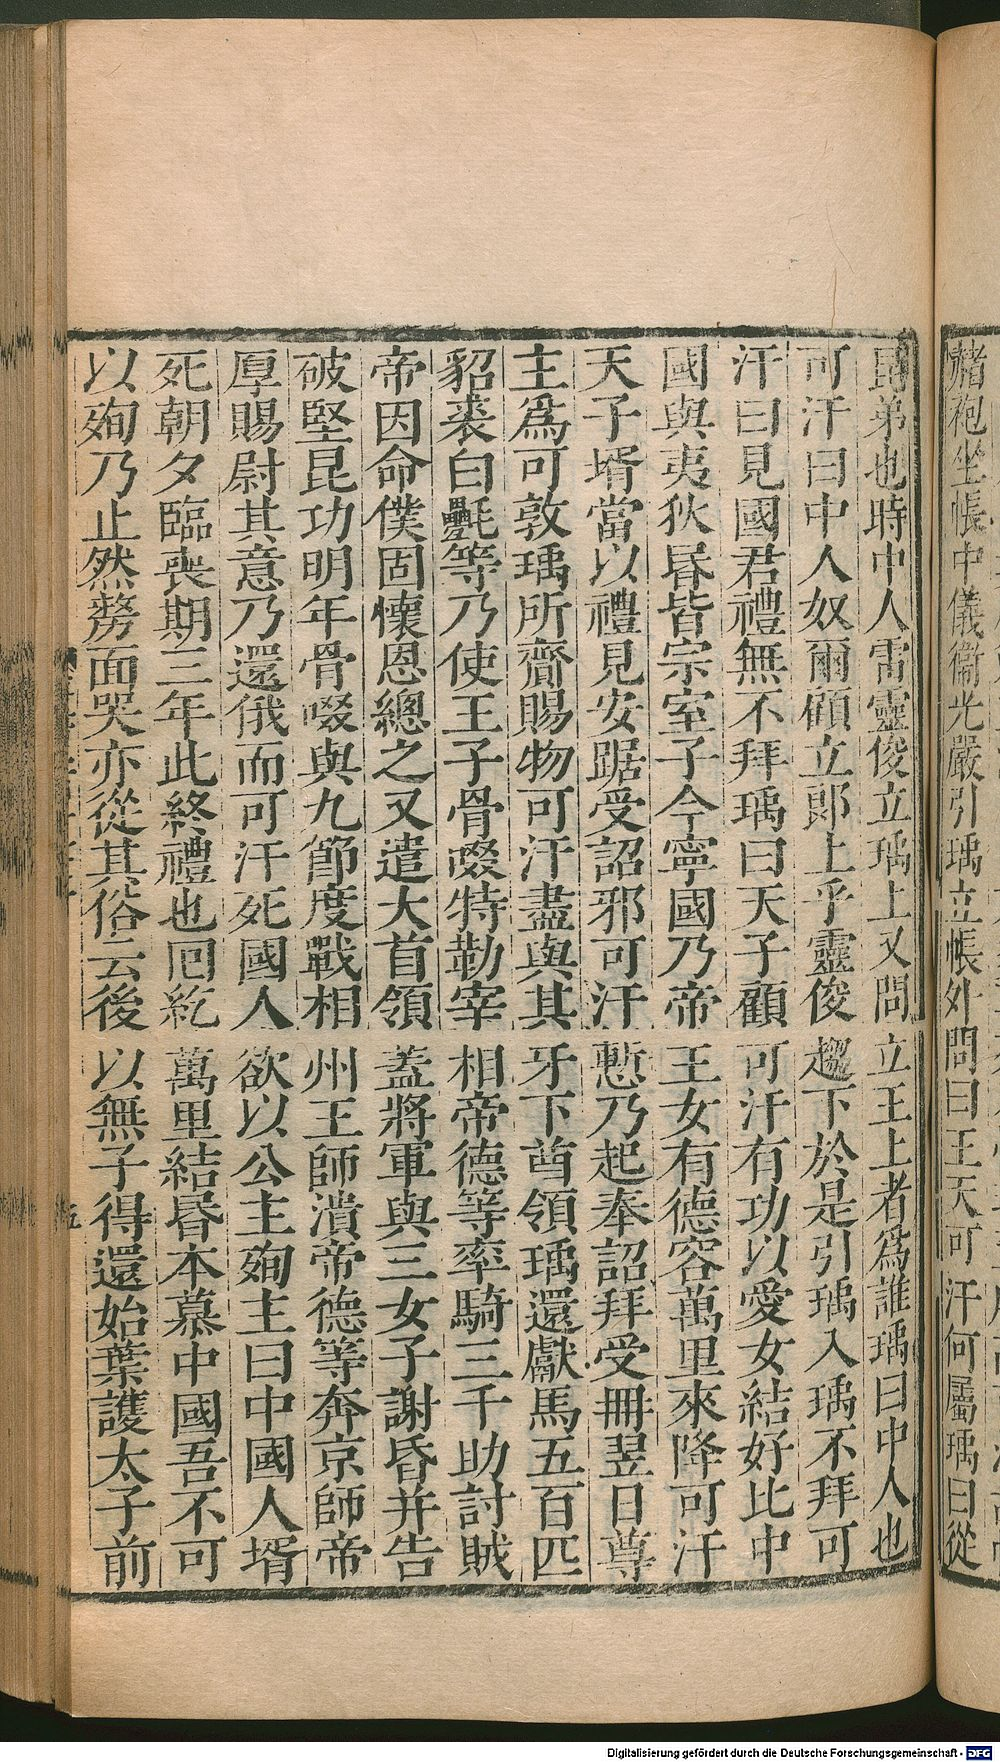 赭袍坐帳中儀衞光嚴引瑀立帳外問曰王天可汗何屬瑀曰從
昆弟也時中人雷靈俊立瑀上又問立王上者爲誰瑀曰中人也
可汗曰中人奴爾顧立郎上乎靈俊趨下於是引瑀入瑀不拜可
汗曰見國君禮無不拜瑀曰天子顧可汗有功以愛女結好比中
國與夷狄昏皆宗室子今寧國乃帝王女有德容萬里來降可汗
天子壻當以禮見安踞受詔邪可汗慙乃起奉詔拜受冊翌日尊
主爲可敦瑀所齎賜物可汗盡與其牙下酋領瑀還獻馬五百匹
貂裘白㲲等乃使王子骨啜特勒宰相帝德等率騎三千助討賊
帝因命僕固懷恩總之又遣大首領蓋將軍與三女子謝昏并告
破堅昆功明年骨啜與九節度戰相州王師潰帝德等奔京師帝
厚賜尉其意乃還俄而可汗死國人欲以公主殉主曰中國人壻
死朝夕臨喪期三年此終禮也回紇萬里結昏本慕中國吾不可
以殉乃止然剺面哭亦從其俗云後以無子得還始葉護太子前
五
Digitalisierung gefördert durch die Deutsche Forschungsgemeinschaft - DFG